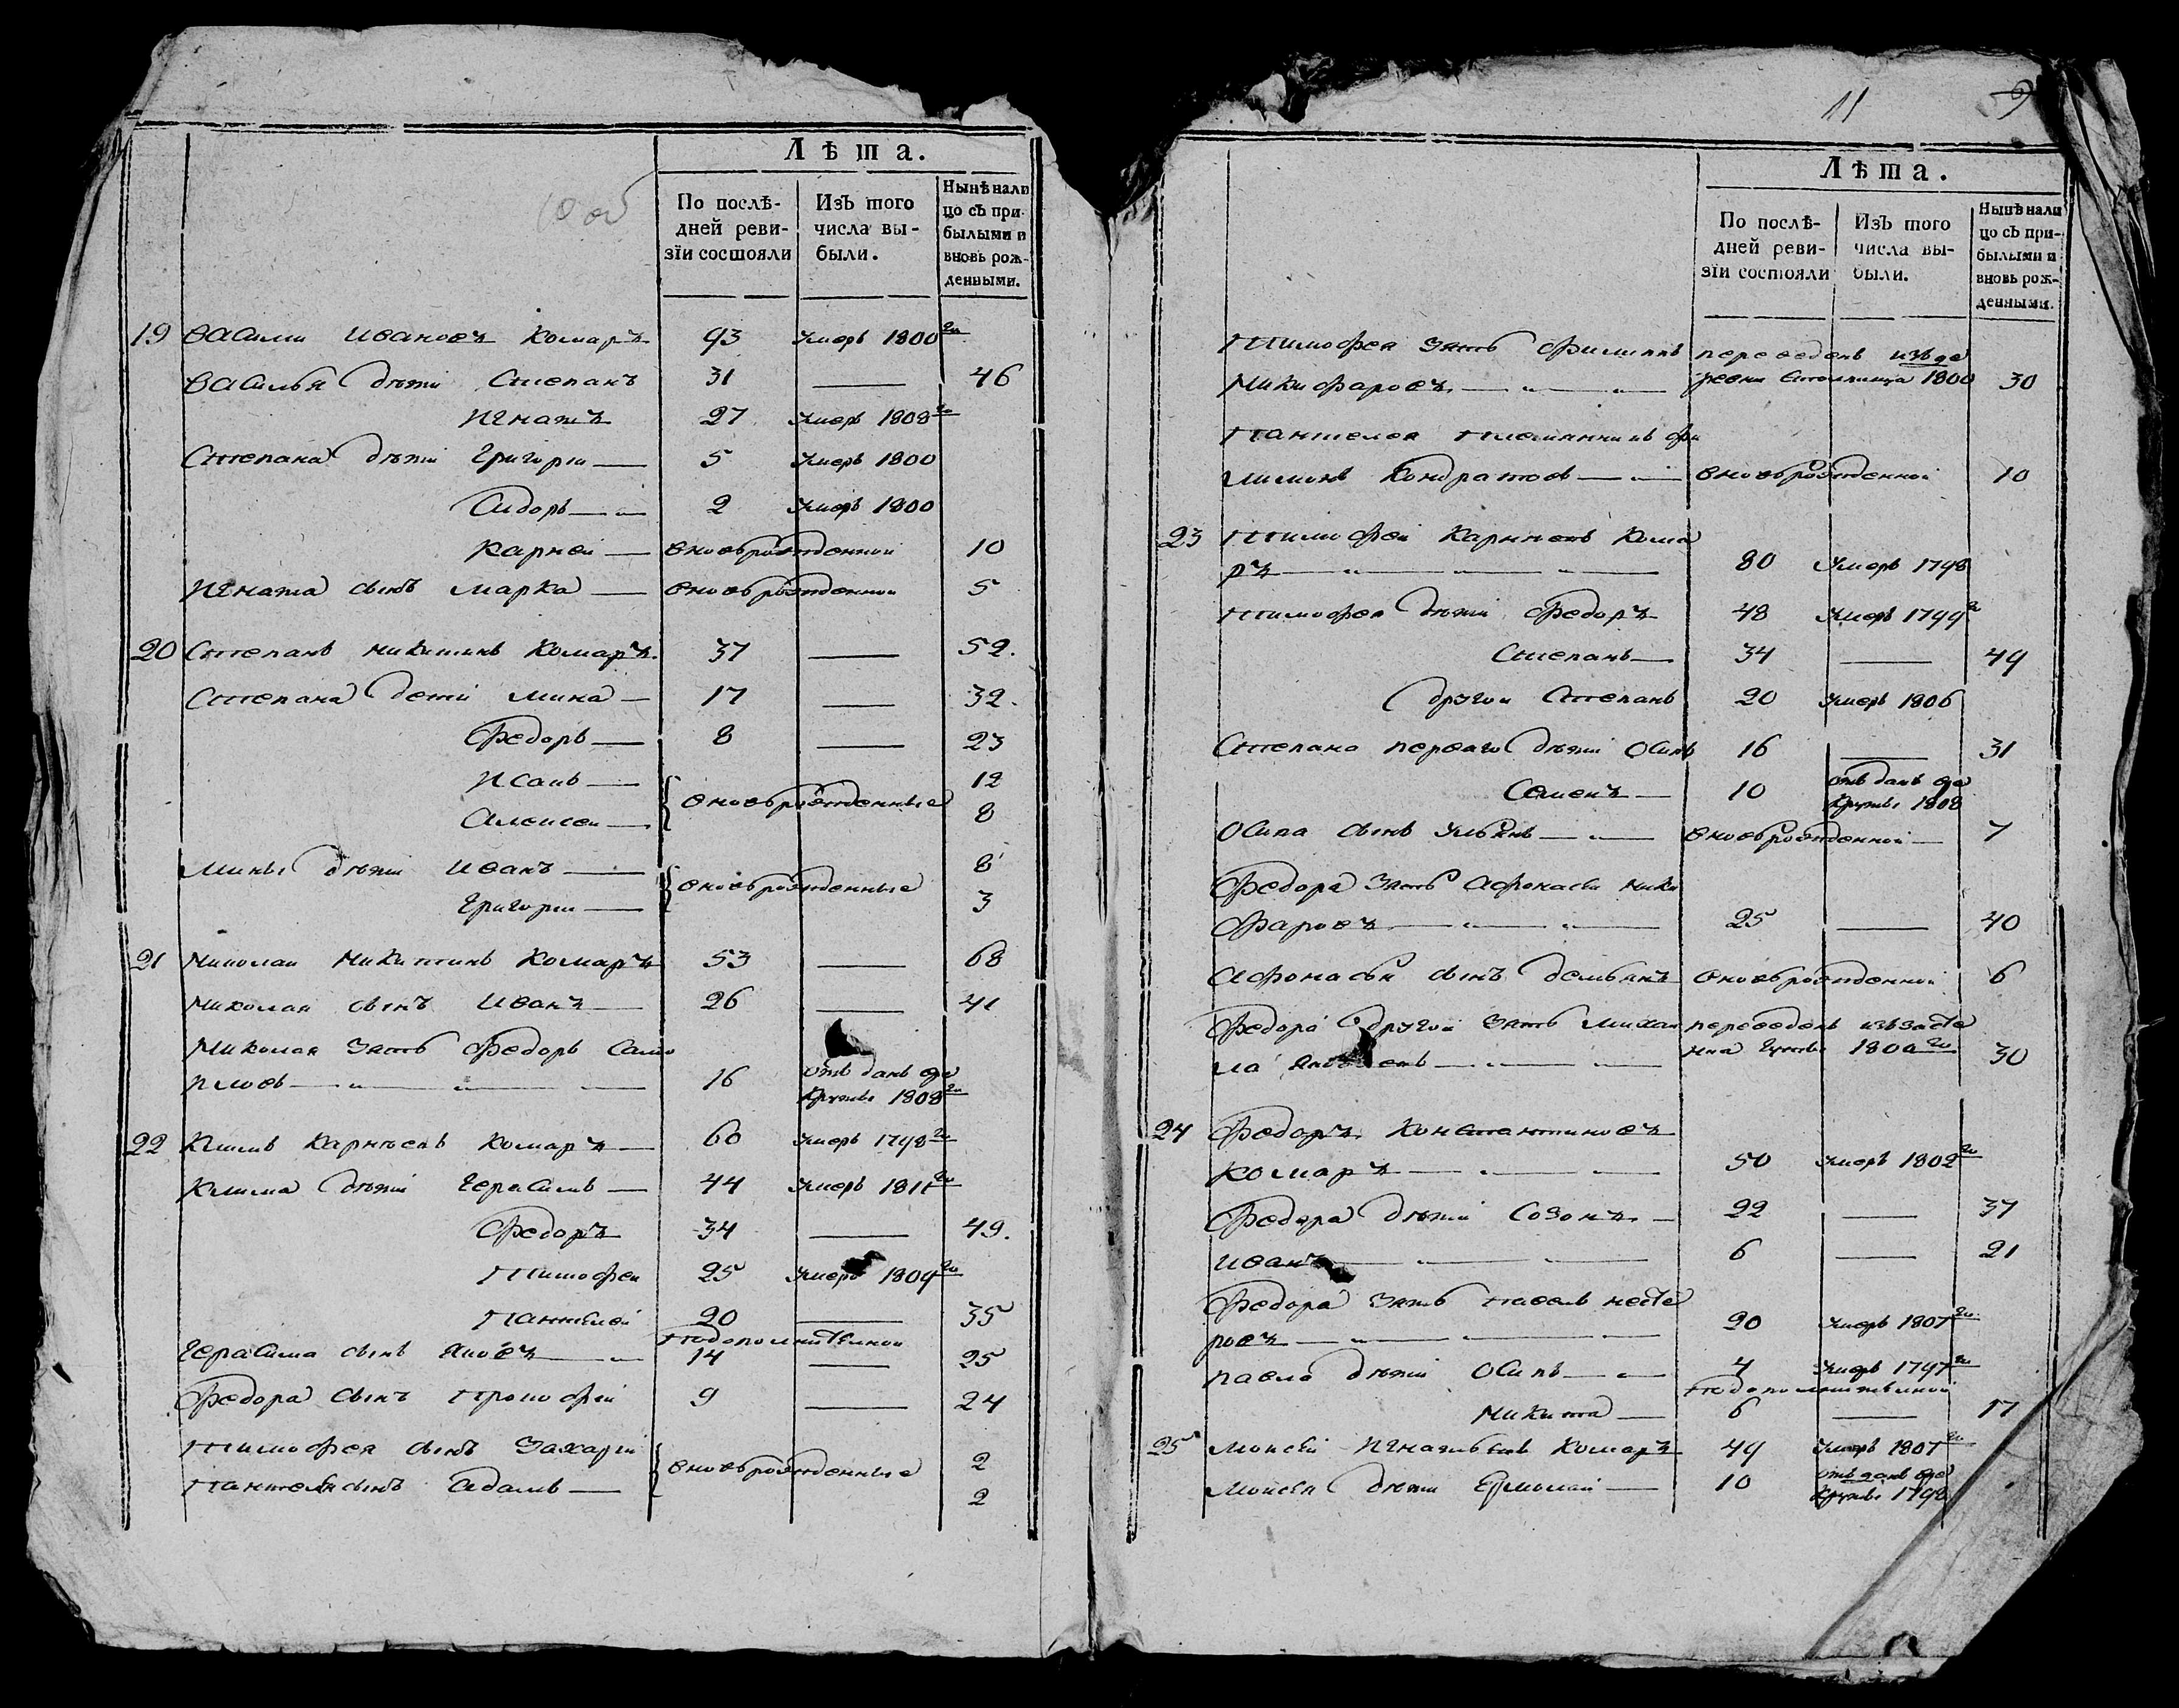 10 об
Лѣта.
По послѣ-
дней реви-
зїи состояли
Изъ того
числа вы-
были.
Нынѣ нали
цо съ при-
былыми и
вновь рож-
денными.
19 Васили Ивановъ Комаръ 93 умеръ 1800го
Василья дѣти Степанъ 31 — 46
Игнатъ 27 умеръ 1808го
Степана дѣти Григори — 5 умеръ 1800
Сидоръ — 2 умеръ 1800
Карней — вновьрожденной 10
Игната сынъ Марка — вновьрожденной 5
20 Степанъ Никитинъ Комаръ. 37 — 52.
Степана дети Мина — 17 — 32.
Федоръ — 8 — 23
Исаиъ — 12
вновьрожденные
Алексеи — 8
Мины дѣти Иванъ — 8
вновьрожденные
Григори — 3
21 Николаи Никитинъ Комаръ 53 — 68
Николая сынъ Иванъ — 26 — 41
Николая зять Федоръ Само
иловъ — 16 отъ данъ вре
круты 1808го
22 Климъ Карнѣевъ Комаръ — 60 умеръ 1798го
Клима дѣти Герасимъ — 44 умеръ 1811го
Федоръ 34 — 49.
Тимофеи 25 умеръ 1809го
Пантелей 20 — 35
Подополнителной
Герасима сынъ Яковъ — 14 — 25
Федора сынъ Прокофей 9 — 24
Тимофея сынъ Захарий 2
вновьрожденные
Пантелея сынъ Адамъ — 2
11 9
Лѣта.
По послѣ-
дней реви-
зїи состояли
Изъ того
числа вы-
были.
Нынѣ нали
цо съ при-
былыми и
вновь рож-
денными.
Тимофея зять Филипъ переведенъ изъ де
Никифаровъ — ревни 1800 30
Пантелея племянникъ Фи
лимонъ Кондратовъ — вновьрожденной 10
23 Тимофей Карнѣевъ Кома
ръ — 80 умеръ 1798
Тимофея дѣти Федоръ 48 умеръ 1799го
Степанъ — 34 — 49
другои Степанъ 20 умеръ 1806
Степана перваго дѣти Осипъ 16 — 31
Семенъ — 10 отъ данъ вре
круты 1808
Осипа сынъ Ульянъ — вновьрожденной — 7
Федора зять Афонасеи Ники
фаровъ — 25 — 40
Афонасья сынъ Демьянъ вновьрожденной 6
Федора другой зять Михаи переведенъ изъ
ла — 1800го 30
24 Федоръ Константиновъ
Комаръ — 50 умеръ 1802го
Федора дѣти Созонъ — 22 — 37
Иванъ — 6 — 21
Федора зять Павелъ Несте
ровъ — 20 умеръ 1807го
Павла дѣти Осипъ — 4 умеръ 1797го
Подополнителной
Никита — 6 — 17
25 Моисей Игнатьевъ Комаръ 49 умеръ 1807го
Моисея дѣти Ермолай — 10 отъ данъ вре
круты 1798